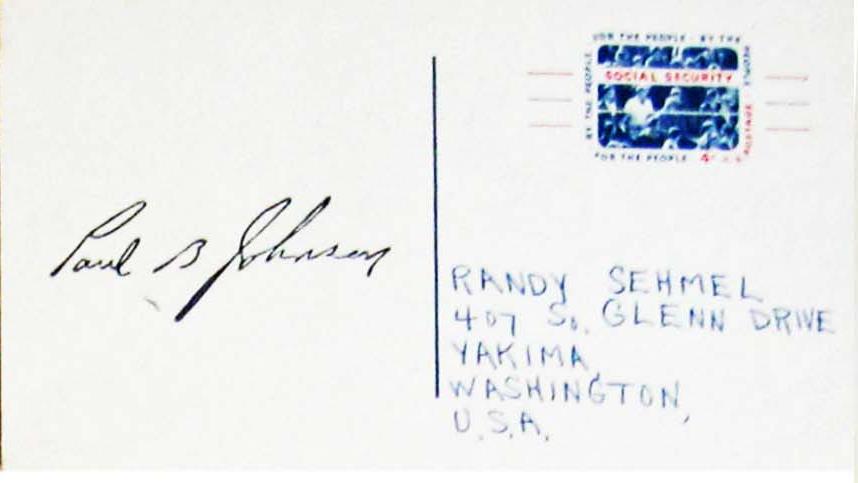 FOR THE PEOPLE · BY THE PEOPLE
SOCIAL SECURITY
BY THE PEOPLE
POSTAGE
FOR THE PEOPLE 4¢ U.S.
Paul B Johnson
RANDY SEHMEL
407 So. GLENN DRIVE
YAKIMA
WASHINGTON,
U.S.A.